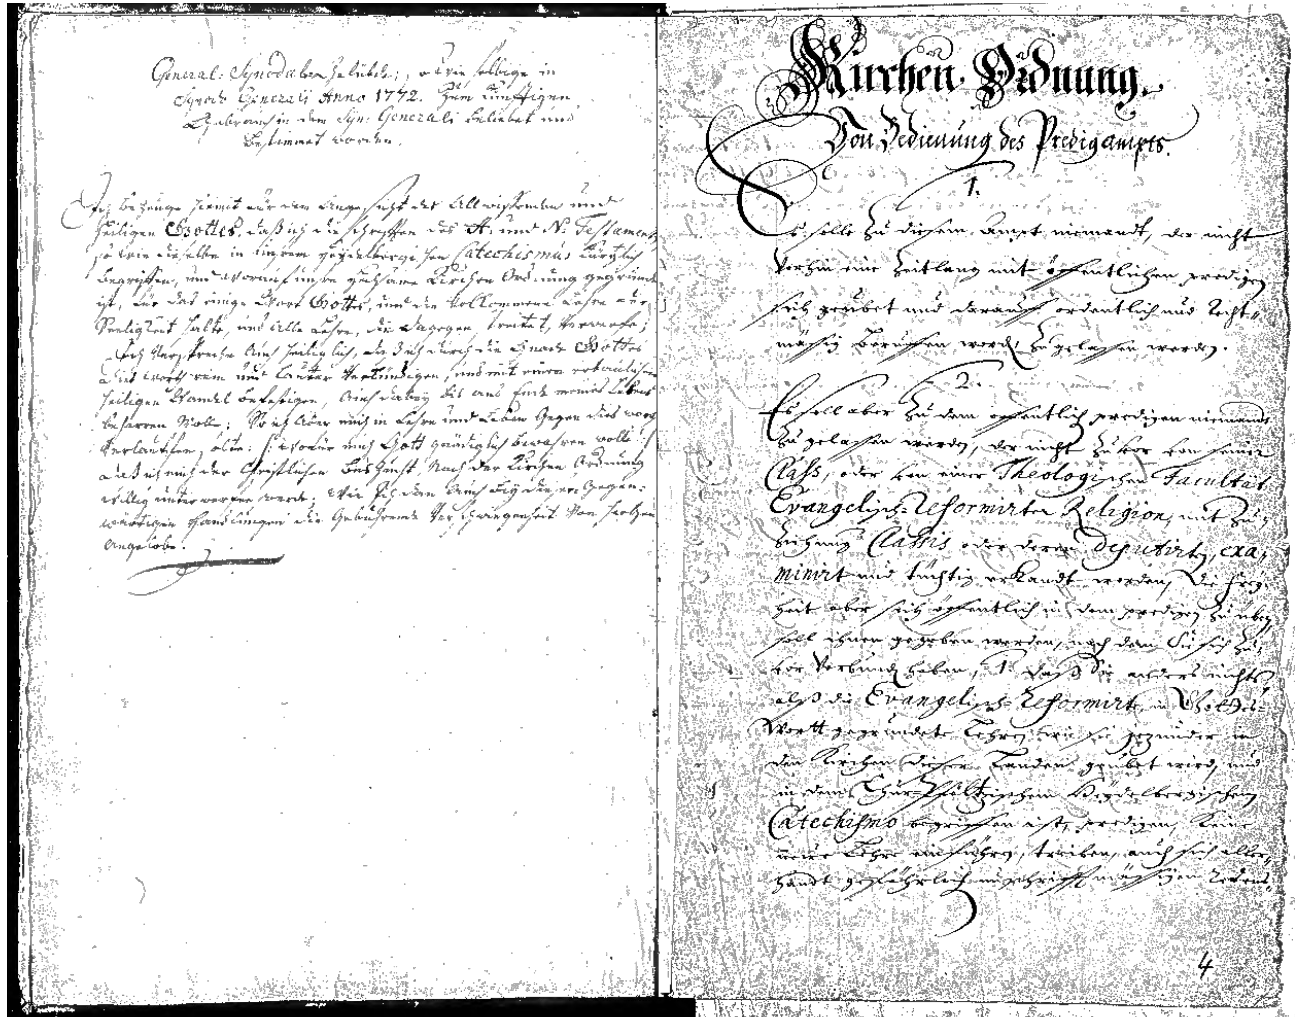 General: Synodal
Synodi Generali Anno 1772. Zum Künfftigen
Gebrauch in dem Syn: Generali beliebet und
bestimmet worden.
Ich bezeuge hiemit vor dem Angesicht des Allwissenden und
heiligen Gottes, daß ich die Schrifften des A. und N. Testaments
so wie dieselbe in unserm Heydelbergischen Catechismus kürtzlich
begriffen, und worauf unsere Kirchen Ordnung gegründet
ist, vor das einige Wort Gottes, und die vollkommene Lehre zur
Seeligkeit halte, und alle Lehre, die dagegen streitet, verwerfe;
Ich verspreche auch heiliglich, daß ich durch die Gnade Gottes
dies Wort rein und lauter verkündigen, und mit einem erbaulichen
heiligen Wandel befestigen, auch dabey bis ans Ende meines Lebens
beharren wolle; So ich aber mich in Lehre und Leben gegen dies Wort
verlauffen solte, hievor mich Gott gnädiglich bewahren wolle,
daß ich mich der Christlichen Nach der Kirchen Ordnung
willig unterwerfen werde; Wie ich dan auch bey diesen gegen-
wärtigen Handlungen die gebührende Verschwiegenheit von Hertzen
angelobe.
Kirchen Ordnung.
Von Bedienung des Predigampts.
1.
Es solle zu diesem Ampt niemandt, der nicht
vorhin eine Zeitlang mit öffentlichen predigen
sich geübet und darauff ordentlich und Recht-
mässig beruffen worden, zugelassen werden.
2.
Es soll aber zu dem offentlich predigen niemandt
zugelassen werden, der nicht zuvor von seiner
Class, oder von einer Theologischen Facultät
Evangelisch-Reformirter Religion, mit Zu-
ziehung Classis oder deren deputirten, exa-
minirt und tüchtig erkandt worden, die Frey-
heit aber sich öffentlich in dem predigen zu üben
soll ihnen gegeben werden, nach dem Sie sich zu-
vor verbunden haben, 1. daß Sie anders nichts
alß die Evangelisch-Reformirte, in Gottes-
Wortt gegründete Lehre, wie sie jezunder in
den Kirchen dieser Landen geübet wird, und
in dem Chur-Pfältzischen Heydelbergischen
Catechismo begriffen ist, predigen, keine
neue Lehre einführen, treiben, auch sich aller-
handt gefährlich unschrifftmässigen Redens-
4